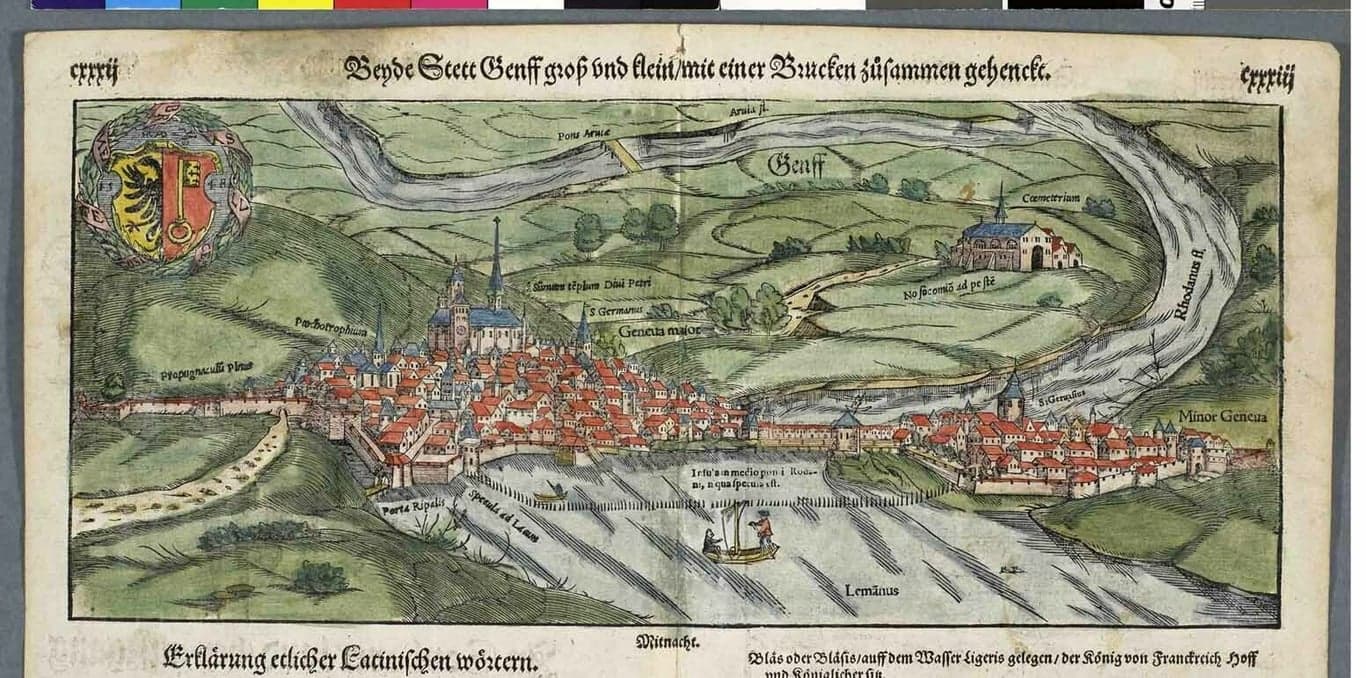 cxxxij
Beyde Stett Genff groß vnd klein/mit einer Brucken zůsammen gehenckt.
cxxxiij
Arula fl.
Pons Aruæ
Genff
Cœmeterium
Summ tēplum Diui Petri
S Germanus
Geneua maior
Nosocomiō ad pestē
Rhodanus fl.
Ptochotrophium
Propugnaculū Pinus
S. Geruasius
Minor Geneua
Insula in medio pontis Roda-
ni, in qua specula est.
Porta Ripalis
Specula ad Lacum
Lemānus
Mitnacht.
Erklärung etlicher Latinischen wörtern.
Bläs oder Bläsis/auff dem Wasser Ligeris gelegen/der König von Franckreich Hoff
vnd Königlicher sitz.